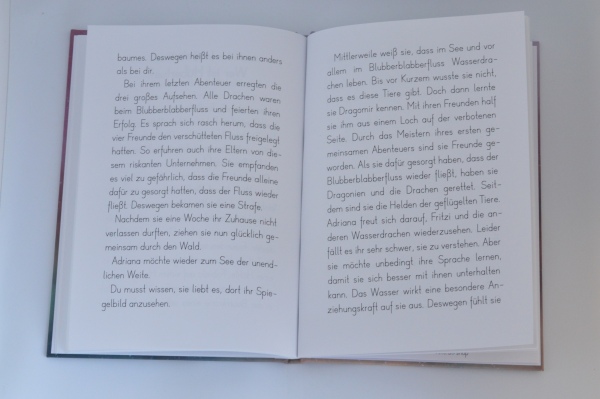 baumes. Deswegen heißt es bei ihnen anders
als bei dir.
Bei ihrem letzten Abenteuer erregten die
drei großes Aufsehen. Alle Drachen waren
beim Blubberblabberfluss und feierten ihren
Erfolg. Es sprach sich rasch herum, dass die
vier Freunde den verschütteten Fluss freigelegt
hatten. So erfuhren auch ihre Eltern von die-
sem riskanten Unternehmen. Sie empfanden
es viel zu gefährlich, dass die Freunde alleine
dafür zu gesorgt hatten, dass der Fluss wieder
fließt. Deswegen bekamen sie eine Strafe.
Nachdem sie eine Woche ihr Zuhause nicht
verlassen durften, ziehen sie nun glücklich ge-
meinsam durch den Wald.
Adriana möchte wieder zum See der unend-
lichen Weite.
Du musst wissen, sie liebt es, dort ihr Spie-
gelbild anzusehen.
Mittlerweile weiß sie, dass im See und vor
allem im Blubberblabberfluss Wasserdra-
chen leben. Bis vor Kurzem wusste sie nicht,
dass es diese Tiere gibt. Doch dann lernte
sie Dragomir kennen. Mit ihren Freunden half
sie ihm aus einem Loch auf der verbotenen
Seite. Durch das Meistern ihres ersten ge-
meinsamen Abenteuers sind sie Freunde ge-
worden. Als sie dafür gesorgt haben, dass der
Blubberblabberfluss wieder fließt, haben sie
Dragonien und die Drachen gerettet. Seit-
dem sind sie die Helden der geflügelten Tiere.
Adriana freut sich darauf, Fritzi und die an-
deren Wasserdrachen wiederzusehen. Leider
fällt es ihr sehr schwer, sie zu verstehen. Aber
sie möchte unbedingt ihre Sprache lernen,
damit sie sich besser mit ihnen unterhalten
kann. Das Wasser wirkt eine besondere An-
ziehungskraft auf sie aus. Deswegen fühlt sie